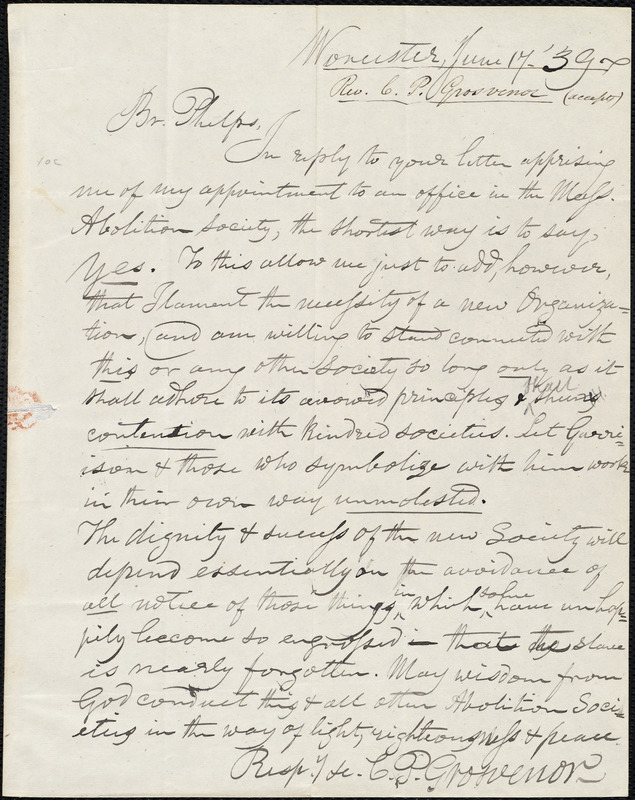 Worcester, June 17 '39
Rev. C. P. Grosvenor (accepts)
Br. Phelps,
In reply to your letter apprising
me of my appointment to an office in the Mass.
Abolition Society, the shortest way is to say,
Yes. To this allow me just to add, however,
that I lament the necessity of a new Organiza=
tion, (and am willing to stand connected with
this or any other Society so long only as it
shall adhere to its avowed principles & shall shun
contention with kindred societies. Let Garri=
ison & those who symbolize with him work
in their own way unmolested.
The dignity & success of the new Society will
depend essentially on the avoidance of
all notice of those things in which some have unhap=
pily become so engrossed that the slave
is nearly forgotten. May wisdom from
God conduct this & all other Abolition Soci=
eties in the way of light, righteousness & peace.
Resp'y &c. C. P. Grosvenor